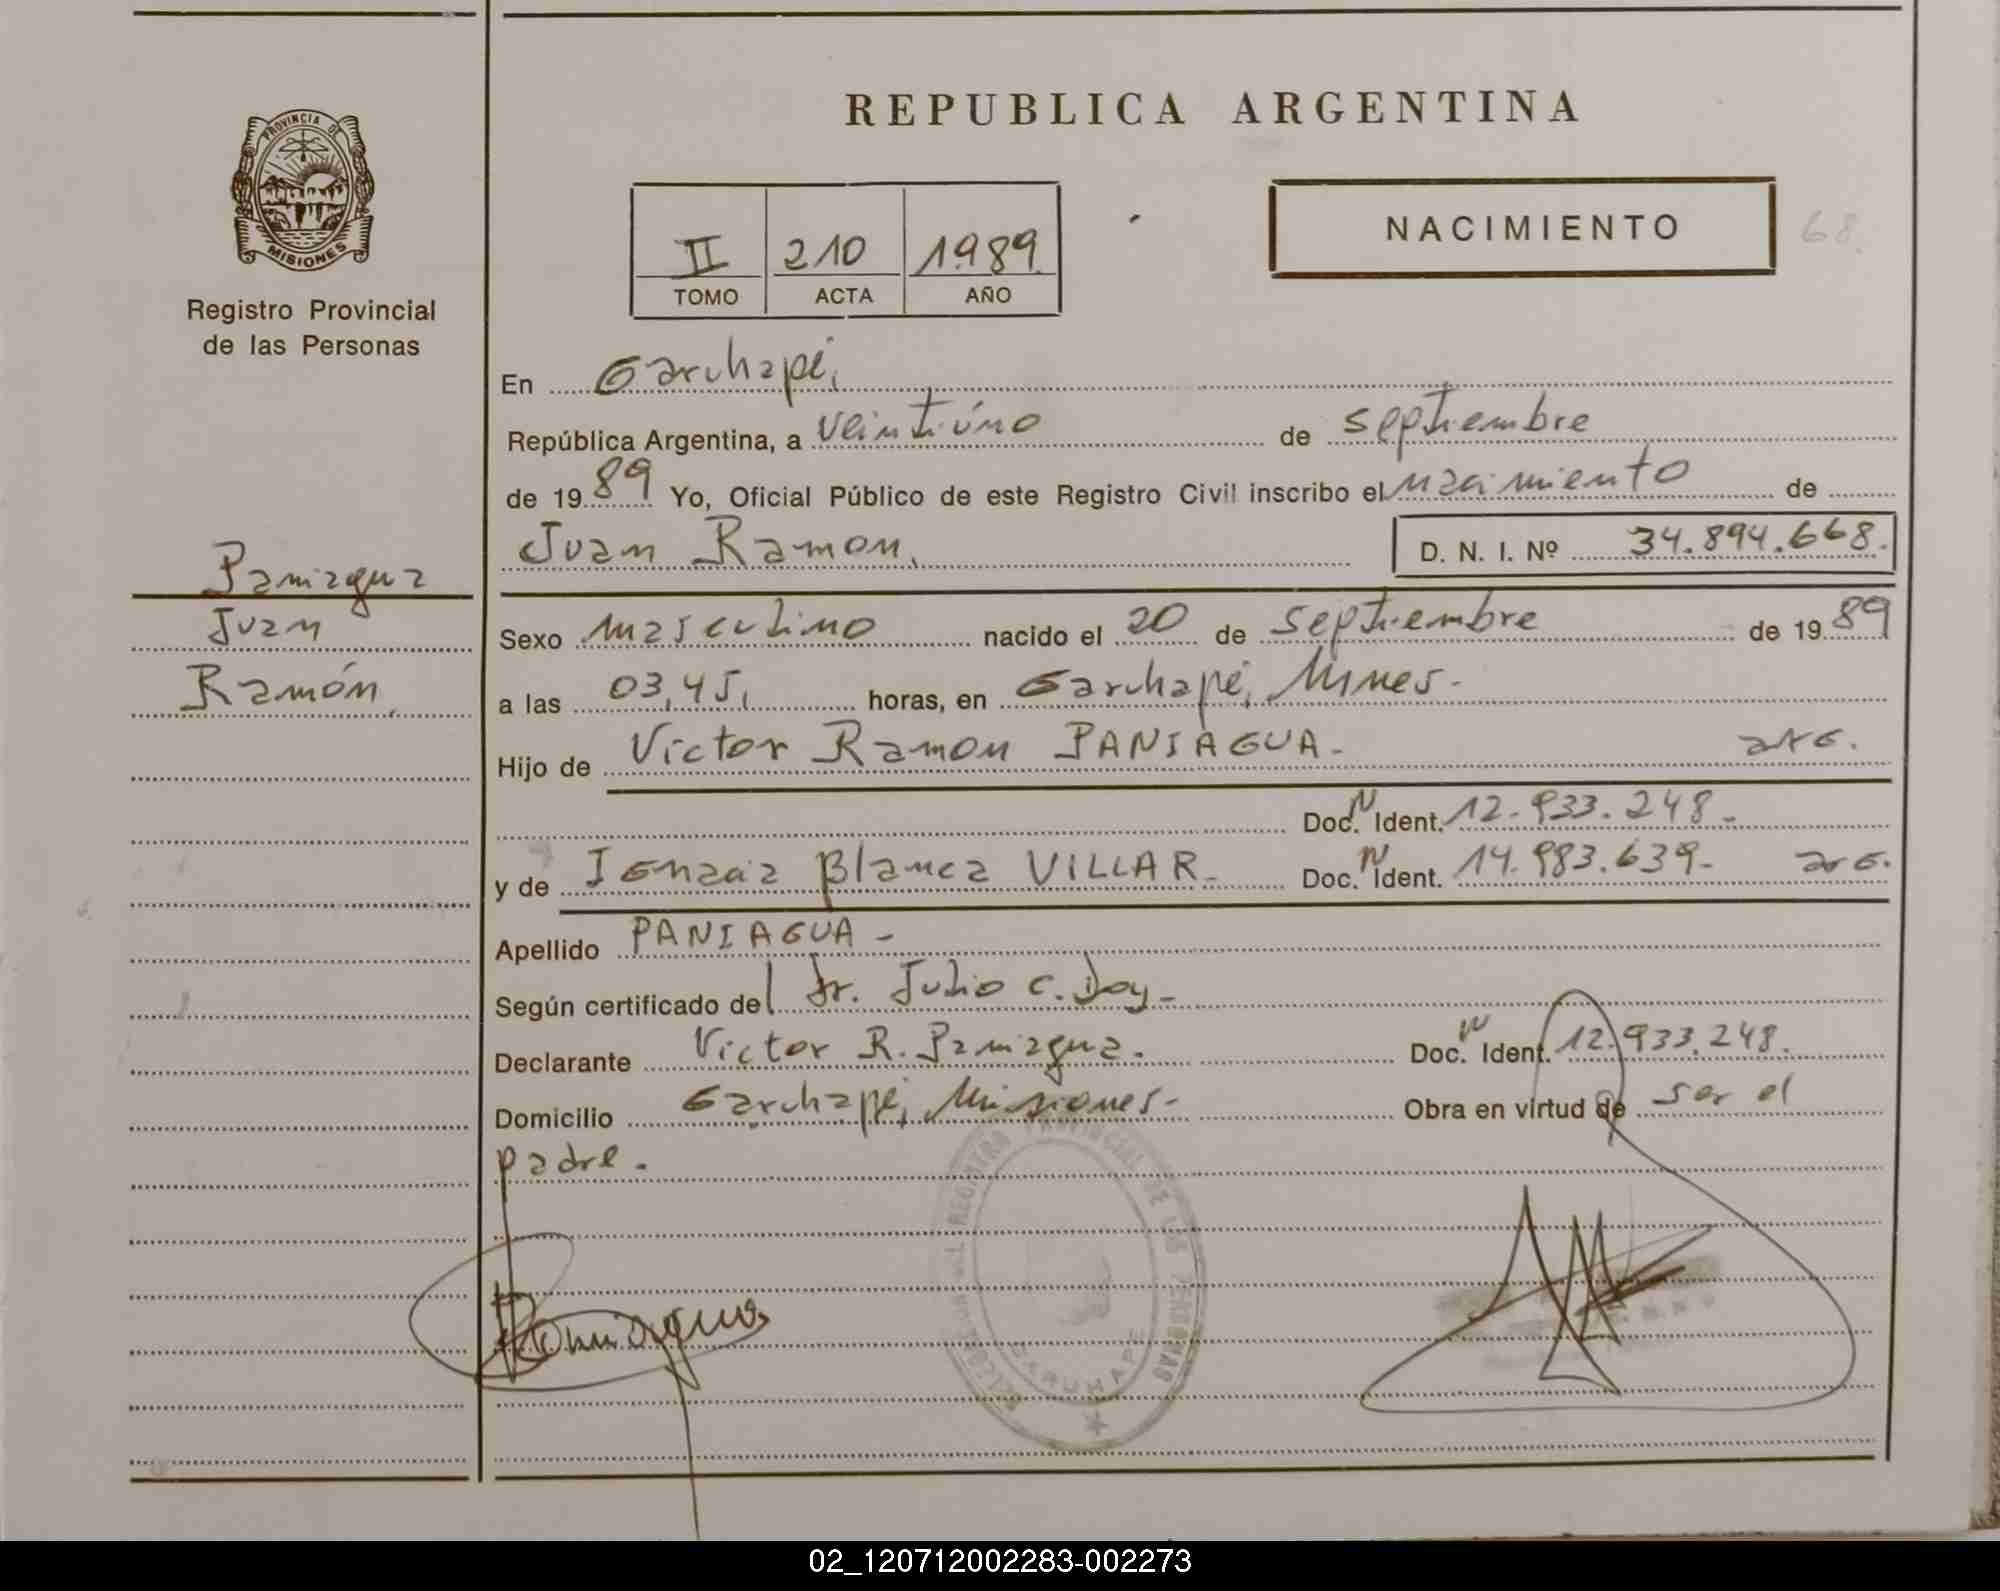 REPUBLICA ARGENTINA
PROVINCIA DE
MISIONES
Registro Provincial
de las Personas
II 210 1989
TOMO ACTA AÑO
NACIMIENTO
68.
En Garuhapé,
República Argentina, a veintiúno de septiembre
de 1989 Yo, Oficial Público de este Registro Civil inscribo el nacimiento de
Juan Ramon, D. N. I. Nº 34.894.668.
Paniagua
Juan
Ramón,
Sexo masculino nacido el 20 de septiembre de 1989
a las 03,45, horas, en Garuhapé, Mnes.
Hijo de Victor Ramon PANIAGUA - arg.
Doc. N Ident. 12.933.248 -
y de Ignacia Blanca VILLAR - Doc. N Ident. 14.983.639 - arg.
Apellido PANIAGUA -
Según certificado del Dr. Julio C. Doy -
Declarante Victor R. Paniagua. Doc. N Ident. 12.933.248.
Domicilio Garuhapé, Misiones - Obra en virtud de ser el
padre.
Paniagua
REGISTRO PROVINCIAL DE LAS PERSONAS
GARUHAPE
02_120712002283-002273